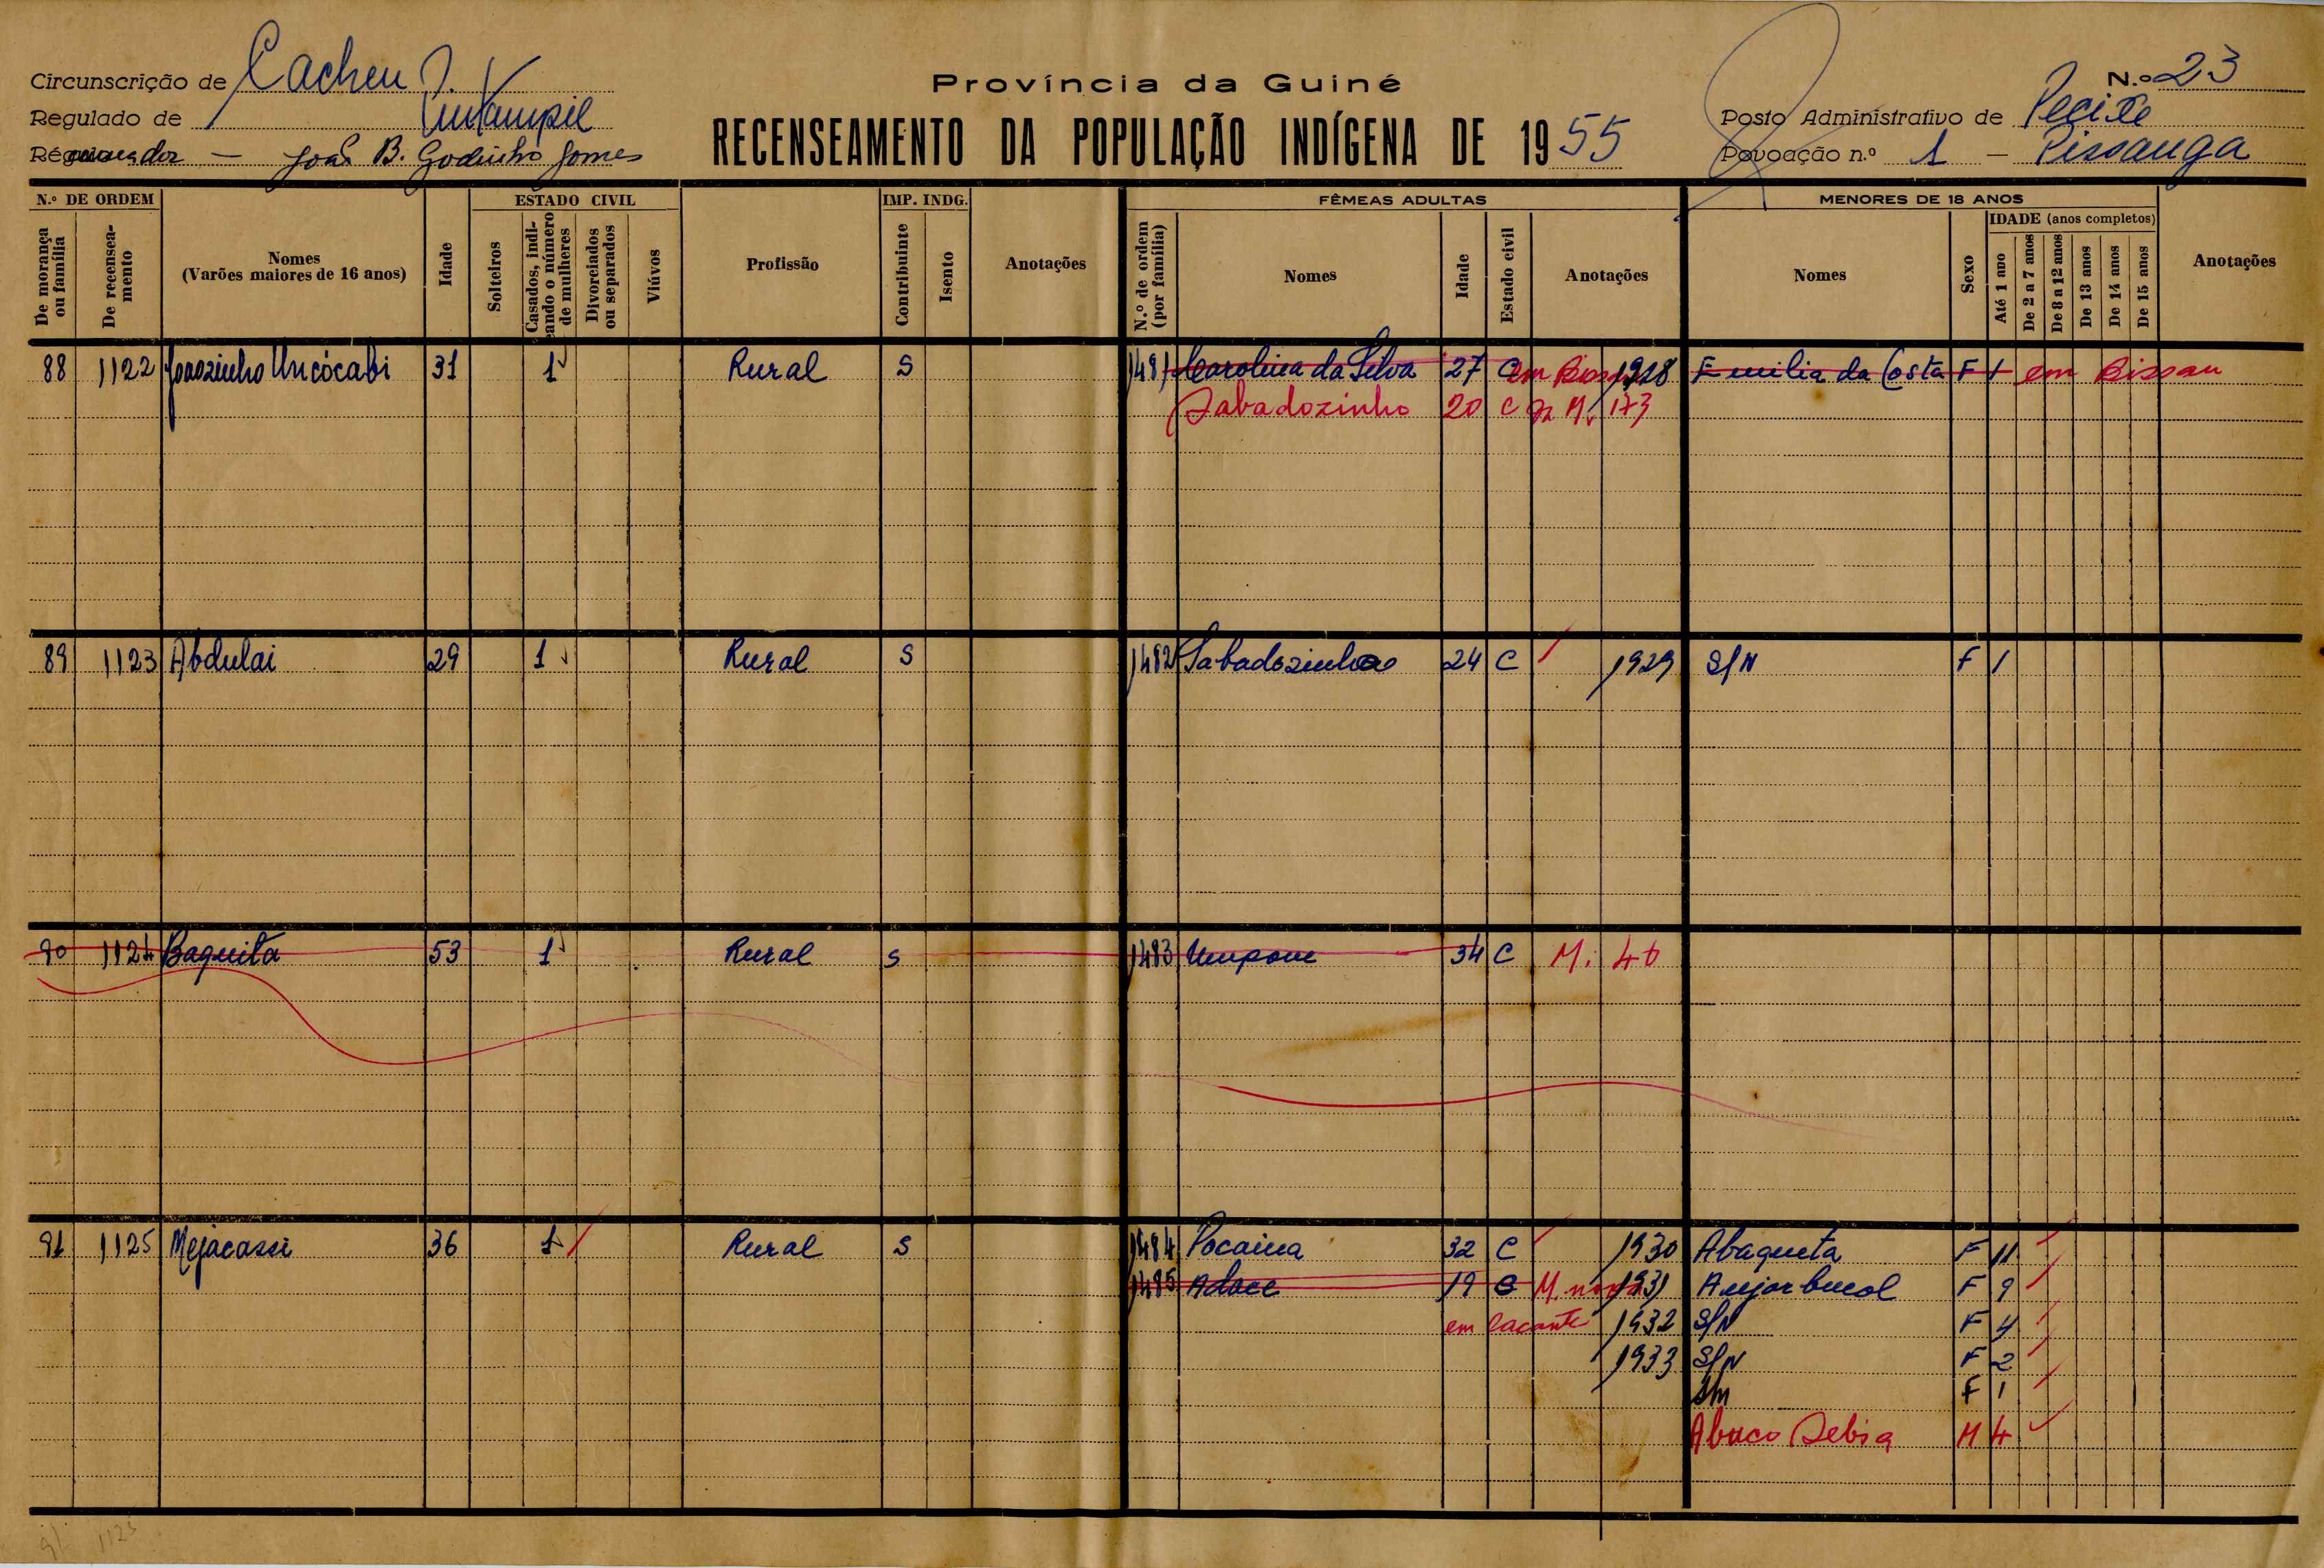 Circunscrição de Cacheu
Província da Guiné
N.º 23
Regulado de
Posto Administrativo de Pecixe
João B. Godinho Gomes
RECENSEAMENTO DA POPULAÇÃO INDÍGENA DE 1955
Povoação n.º 1 — Pissanga
N.º DE ORDEM
ESTADO CIVIL
IMP. INDG.
FÊMEAS ADULTAS
MENORES DE 18 ANOS
IDADE (anos completos)
De morança ou família
De recenseamento
Nomes
(Varões maiores de 16 anos)
Idade
Solteiros
Casados, indicando o número de mulheres
Divorciados ou separados
Viúvos
Profissão
Contribuinte
Isento
Anotações
N.º de ordem (por família)
Nomes
Idade
Estado civil
Anotações
Nomes
Sexo
Até 1 ano
De 2 a 7 anos
De 8 a 12 anos
De 13 anos
De 14 anos
De 15 anos
Anotações
88 1122 Joaozinho Uncócabi 31 1 Rural S 1481 Carolina da Silva 27 C em 1928 Emilia da Costa F 1 em Bissau
Sabadozinho 20 C M. 173
89 1123 Abdulai 29 1 Rural S 1482 Sabadozinho 24 C 1929 S/N F 1
90 1124 Baquita 53 1 Rural S 1483 Umpone 34 C M. 40
91 1125 Mejacassi 36 1 Rural S 1484 Pocaina 32 C 1930 Abaqueta F 11
1485 Adoce 19 C M. 1931 Anjarbucol F 9
em 1932 S/N F 4
1933 S/N F 2
S/n F 1
Abuco Sebia M 4
91 1125